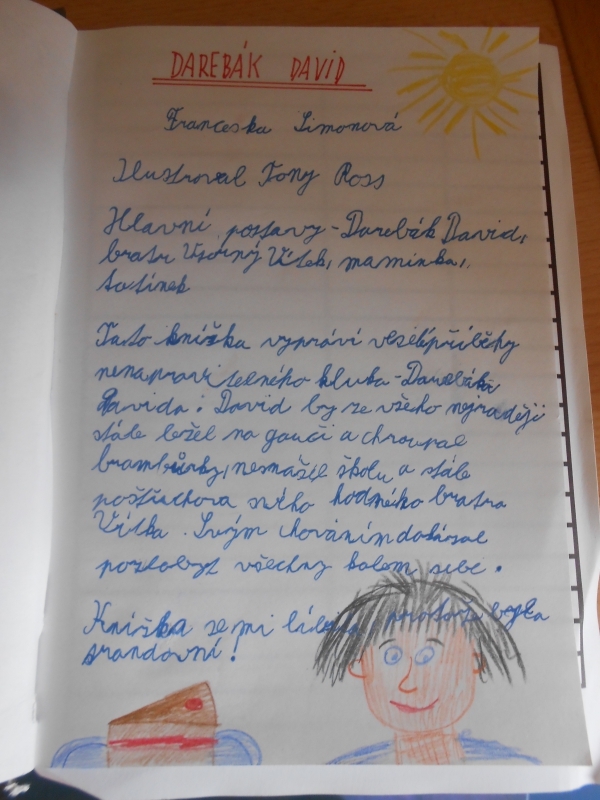 DAREBÁK DAVID
Franceska Simonová
Ilustroval Tony Ross
Hlavní postavy - Darebák David,
bratr Vzorný Vítek, maminka,
tatínek
Tato knížka vypráví veselé příběhy
nenapravitelného kluka - Darebáka
Davida. David by ze všeho nejraději
stále ležel na gauči a chroupal
brambůrky, nesnášel školu a stále
pošťuchova svého hodného bratra
Vítka. Svým chováním dokázal
pozlobyt všechny kolem sebe.
Knížka se mi líbila protože byla
srandovní!